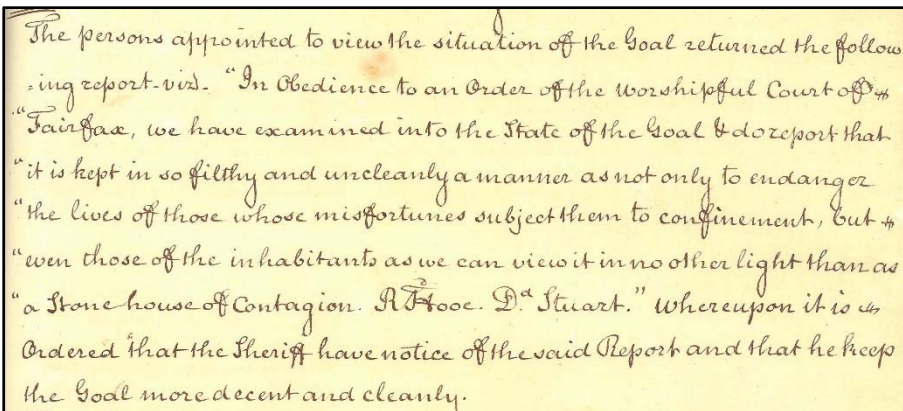 The persons appointed to view the situation of the Goal returned the follow
=ing report-vizt. "In Obedience to an Order of the worshipful Court of
"Fairfax, we have examined into the State of the Goal & do report that
"it is kept in so filthy and uncleanly a manner as not only to endanger
"the lives of those whose misfortunes subject them to confinement, but
"even those of the inhabitants as we can view it in no other light than as
"a Stone house of Contagion. R. T. Hooe. Dd. Stuart." whereupon it is
Ordered that the Sheriff have notice of the said Report and that he keep
the Goal more decent and cleanly.